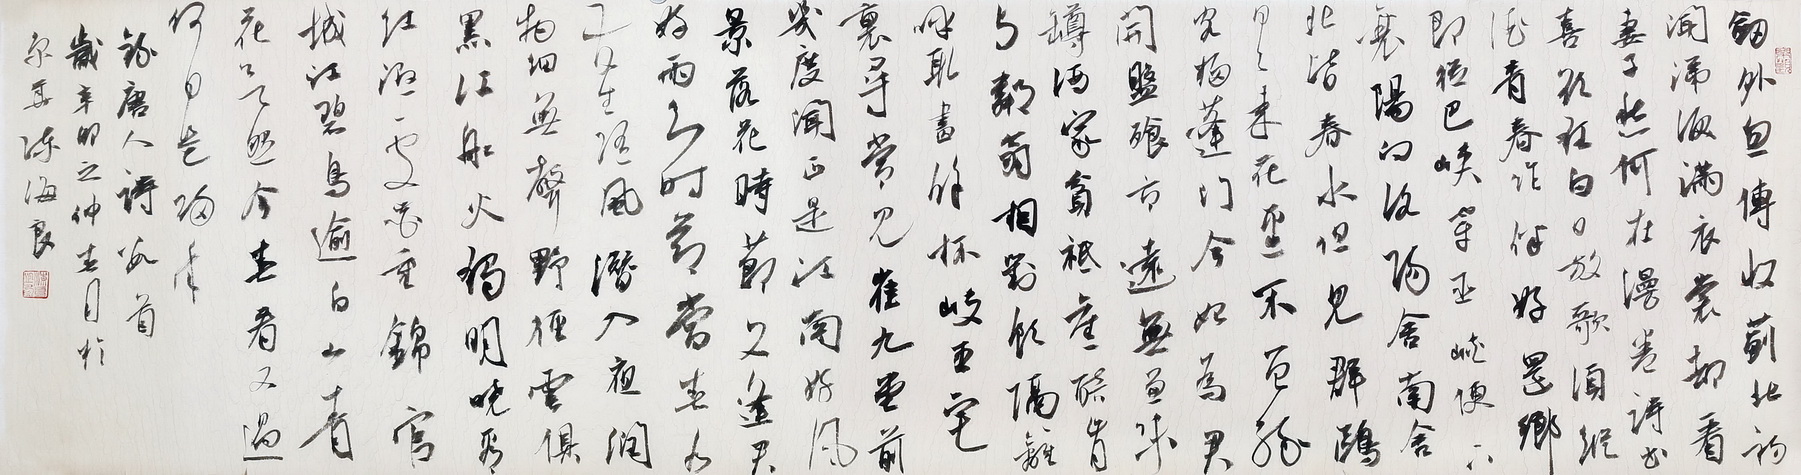 劒外忽傳收薊北初
聞涕淚滿衣裳却看
妻子愁何在漫卷詩書
喜欲狂白日放歌須縱
酒青春作伴好還鄉
即從巴峽穿巫峽便下
襄陽向洛陽舍南舍
北皆春水但見群鷗
日日來花徑不曾緣
客掃蓬門今始為君
開盤飧市遠無兼味
罇酒家貧衹舊醅肯
与鄰翁相對飲隔籬
呼取盡餘杯岐王宅
裏尋常見崔九堂前
幾度聞正是江南好風
景落花時節又逢君
好雨知时節當春乃
發生随風潛入夜潤
物細無聲野徑雲俱
黑江船火獨明曉看
红濕處花重錦官
城江碧鳥逾白山青
花欲然今春看又過
何日是歸年
錄唐人詩數首
歲辛卯之仲春月於
京華陳海良